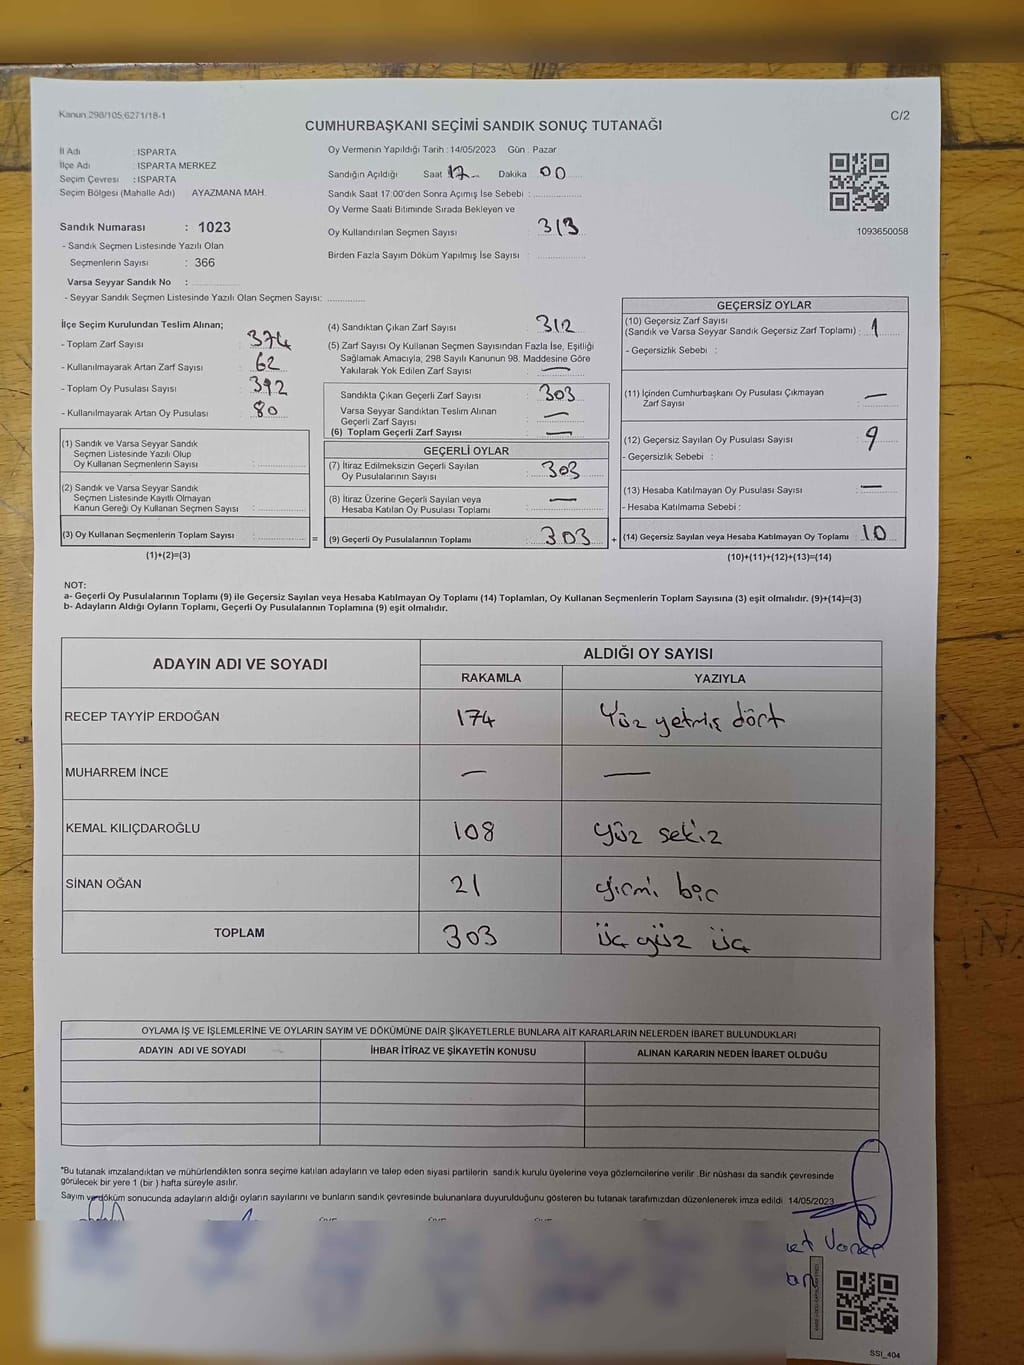 Kanun 298/105,6271/18-1
C/2
CUMHURBAŞKANI SEÇİMİ SANDIK SONUÇ TUTANAĞI
İl Adı : ISPARTA
İlçe Adı : ISPARTA MERKEZ
Seçim Çevresi : ISPARTA
Seçim Bölgesi (Mahalle Adı) AYAZMANA MAH.
Sandık Numarası : 1023
- Sandık Seçmen Listesinde Yazılı Olan
Seçmenlerin Sayısı : 366
Varsa Seyyar Sandık No :
- Seyyar Sandık Seçmen Listesinde Yazılı Olan Seçmen Sayısı:
Oy Vermenin Yapıldığı Tarih : 14/05/2023 Gün : Pazar
Sandığın Açıldığı Saat 17 Dakika 00
Sandık Saat 17:00'den Sonra Açımış İse Sebebi :
Oy Verme Saati Bitiminde Sırada Bekleyen ve
Oy Kullandırılan Seçmen Sayısı : 313
Birden Fazla Sayım Döküm Yapılmış İse Sayısı :
1093650058
İlçe Seçim Kurulundan Teslim Alınan;
- Toplam Zarf Sayısı : 374
- Kullanılmayarak Artan Zarf Sayısı : 62
- Toplam Oy Pusulası Sayısı : 392
- Kullanılmayarak Artan Oy Pusulası : 80
(1) Sandık ve Varsa Seyyar Sandık
Seçmen Listesinde Yazılı Olup
Oy Kullanan Seçmenlerin Sayısı :
(2) Sandık ve Varsa Seyyar Sandık
Seçmen Listesinde Kayıtlı Olmayan
Kanun Gereği Oy Kullanan Seçmen Sayısı :
(3) Oy Kullanan Seçmenlerin Toplam Sayısı :
(1)+(2)=(3)
(4) Sandıktan Çıkan Zarf Sayısı : 312
(5) Zarf Sayısı Oy Kullanan Seçmen Sayısından Fazla İse, Eşitliği
Sağlamak Amacıyla; 298 Sayılı Kanunun 98. Maddesine Göre
Yakılarak Yok Edilen Zarf Sayısı : —
Sandıkta Çıkan Geçerli Zarf Sayısı : 303
Varsa Seyyar Sandıktan Teslim Alınan
Geçerli Zarf Sayısı : —
(6) Toplam Geçerli Zarf Sayısı : —
GEÇERLİ OYLAR
(7) İtiraz Edilmeksizin Geçerli Sayılan
Oy Pusulalarının Sayısı : 303
(8) İtiraz Üzerine Geçerli Sayılan veya
Hesaba Katılan Oy Pusulası Toplamı : —
= (9) Geçerli Oy Pusulalarının Toplamı : 303 +
GEÇERSİZ OYLAR
(10) Geçersiz Zarf Sayısı
(Sandık ve Varsa Seyyar Sandık Geçersiz Zarf Toplamı) : 1
- Geçersizlik Sebebi :
(11) İçinden Cumhurbaşkanı Oy Pusulası Çıkmayan
Zarf Sayısı : —
(12) Geçersiz Sayılan Oy Pusulası Sayısı : 9
- Geçersizlik Sebebi :
(13) Hesaba Katılmayan Oy Pusulası Sayısı : —
- Hesaba Katılmama Sebebi :
(14) Geçersiz Sayılan veya Hesaba Katılmayan Oy Toplamı : 10
(10)+(11)+(12)+(13)=(14)
NOT:
a- Geçerli Oy Pusulalarının Toplamı (9) ile Geçersiz Sayılan veya Hesaba Katılmayan Oy Toplamı (14) Toplamları, Oy Kullanan Seçmenlerin Toplam Sayısına (3) eşit olmalıdır. (9)+(14)=(3)
b- Adayların Aldığı Oyların Toplamı, Geçerli Oy Pusulalarının Toplamına (9) eşit olmalıdır.
ADAYIN ADI VE SOYADI ALDIĞI OY SAYISI
RAKAMLA YAZIYLA
RECEP TAYYİP ERDOĞAN 174 Yüz yetmiş dört
MUHARREM İNCE — —
KEMAL KILIÇDAROĞLU 108 yüz sekiz
SİNAN OĞAN 21 yirmi bir
TOPLAM 303 üç yüz üç
OYLAMA İŞ VE İŞLEMLERİNE VE OYLARIN SAYIM VE DÖKÜMÜNE DAİR ŞİKAYETLERLE BUNLARA AİT KARARLARIN NELERDEN İBARET BULUNDUKLARI
ADAYIN ADI VE SOYADI İHBAR İTİRAZ VE ŞİKAYETİN KONUSU ALINAN KARARIN NEDEN İBARET OLDUĞU
*Bu tutanak imzalandıktan ve mühürlendikten sonra seçime katılan adayların ve talep eden siyasi partilerin sandık kurulu üyelerine veya gözlemcilerine verilir. Bir nüshası da sandık çevresinde
görülecek bir yere 1 (bir) hafta süreyle asılır.
Sayım ve döküm sonucunda adayların aldığı oyların sayılarını ve bunların sandık çevresinde bulunanlara duyurulduğunu gösteren bu tutanak tarafımızdan düzenlenerek imza edildi 14/05/2023
SSI_404